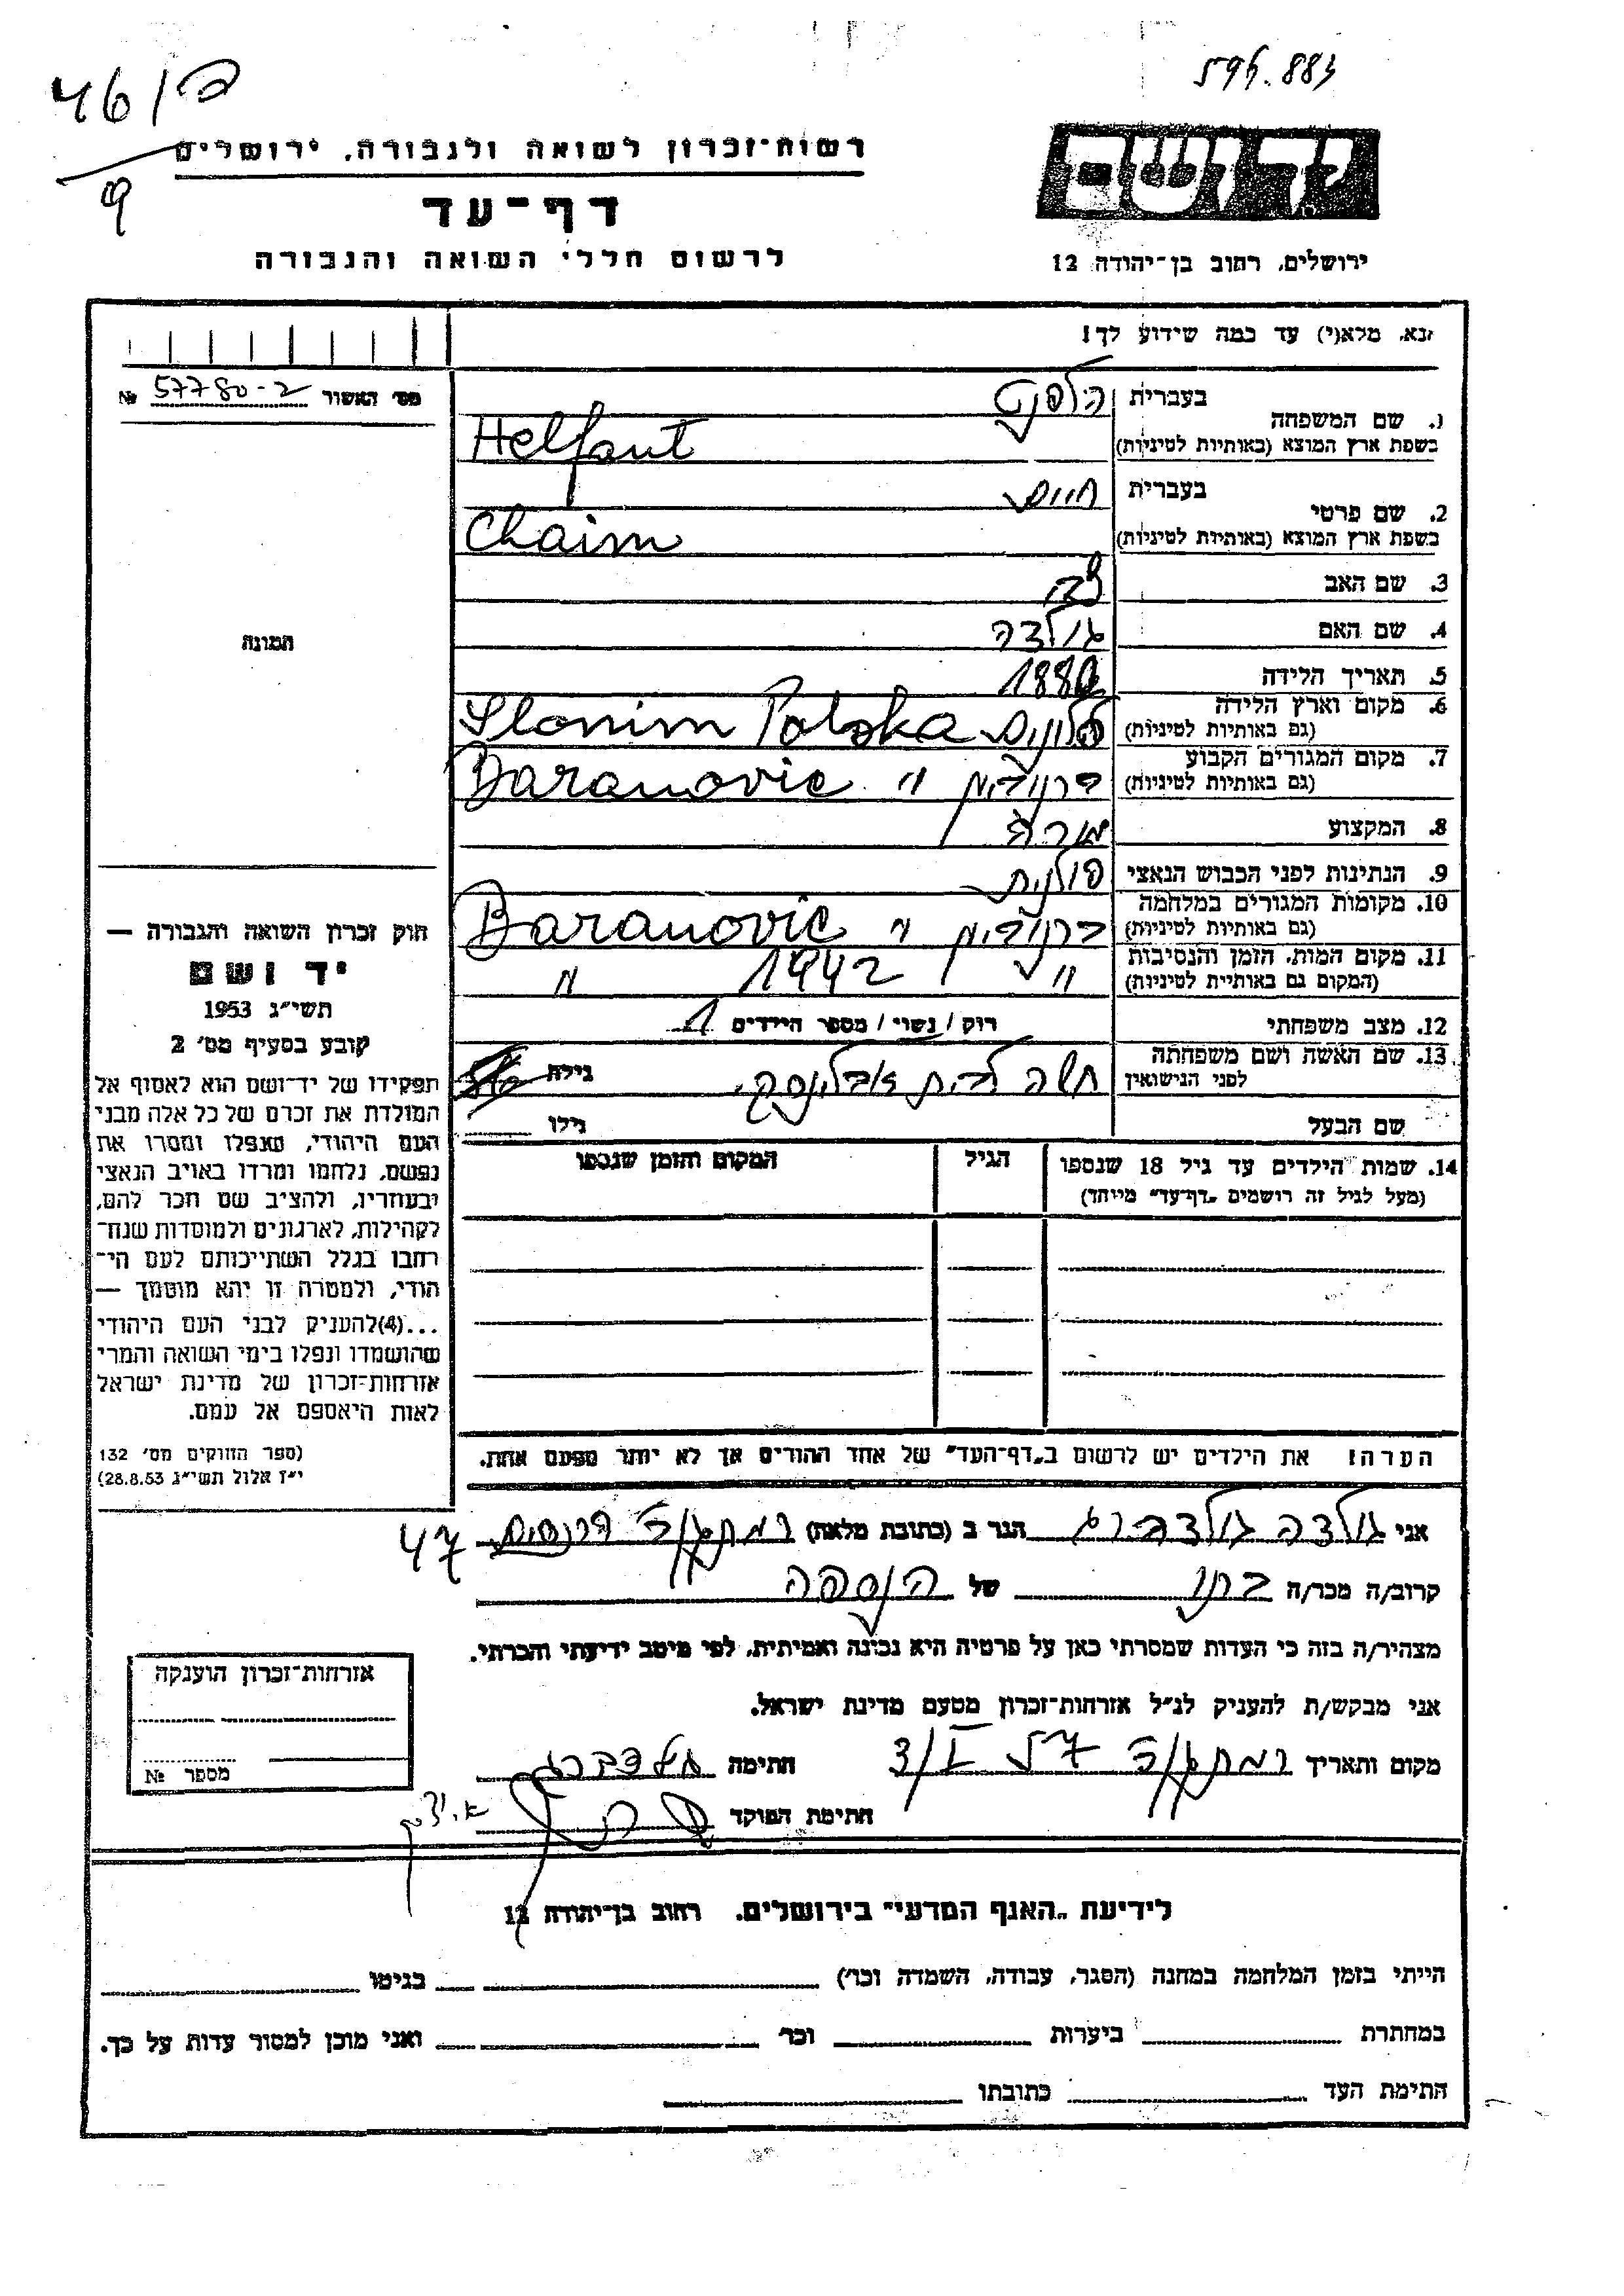 46/ב
9
596.883
רשות-זכרון לשואה ולגבורה, ירושלים
דף-עד
לרשום חללי השואה והגבורה
יד ושם
ירושלים, רחוב בן-יהודה 12
נא, מלא(י) עד כמה שידוע לך!
מס׳ האשור № 57780-2
1. שם המשפחה בעברית הלפנט
בשפת ארץ המוצא (באותיות לטיניות) Helfant
2. שם פרטי בעברית חיים
בשפת ארץ המוצא (באותיות לטיניות) Chaim
3. שם האב
4. שם האם גולדה
5. תאריך הלידה
6. מקום וארץ הלידה (גם באותיות לטיניות) סלונים Slonim Polska
7. מקום המגורים הקבוע (גם באותיות לטיניות) ברנוביץ " Baranovic
8. המקצוע
9. הנתינות לפני הכבוש הנאצי פולנית
10. מקומות המגורים במלחמה (גם באותיות לטיניות) ברנוביץ " Baranovic
11. מקום המות, הזמן והנסיבות (המקום גם באותיות לטיניות) " 1942 "
12. מצב משפחתי רוק / נשוי / מספר הילדים 1
13. שם האשה ושם משפחתה לפני הנישואין חשה לבית גילה
שם הבעל גילו
14. שמות הילדים עד גיל 18 שנספו הגיל המקום והזמן שנספו
(מעל לגיל זה רושמים „דף-עד" מיוחד)
התמונה
חוק זכרון השואה והגבורה —
יד ושם
תשי״ג 1953
קובע בסעיף מס׳ 2
תפקידו של יד-ושם הוא לאסוף אל
המולדת את זכרם של כל אלה מבני
העם היהודי, שנפלו ומסרו את
נפשם, נלחמו ומרדו באויב הנאצי
ובעוזריו, ולהציב שם וזכר להם,
לקהילות, לארגונים ולמוסדות שנח־
רחבו בגלל השתייכותם לעם הי־
הודי, ולמטרה זו יהא מוסמך —
...(4)להעניק לבני העם היהודי
שהושמדו ונפלו בימי השואה והמרי
אזרחות-זכרון של מדינת ישראל
לאות היאספם אל עמם.
(ספר החוקים מס׳ 132
י״ז אלול תשי״ג 28.8.53)
הערה! את הילדים יש לרשום ב„דף-העד" של אחד ההורים אך לא יותר מפעם אחת.
אני גולדה גולדברג הגר ב (כתובת מלאה) רמת גן 47
קרוב/ה מכר/ה בתו של הנספה
מצהיר/ה בזה כי העדות שמסרתי כאן על פרטיה היא נכונה ואמיתית, לפי מיטב ידיעתי והכרתי.
אני מבקש/ת להעניק לנ״ל אזרחות-זכרון מטעם מדינת ישראל.
מקום ותאריך חתימה גולדברג
חתימת הפוקד
אזרחות-זכרון הוענקה
מספר №
לידיעת „האגף המדעי" בירושלים, רחוב בן-יהודה 12
הייתי בזמן המלחמה במחנה (הסגר, עבודה, השמדה וכו׳) בגיטו
במחתרת ביערות וכו׳ ואני מוכן למסור עדות על כך.
חתימת העד כתובתו